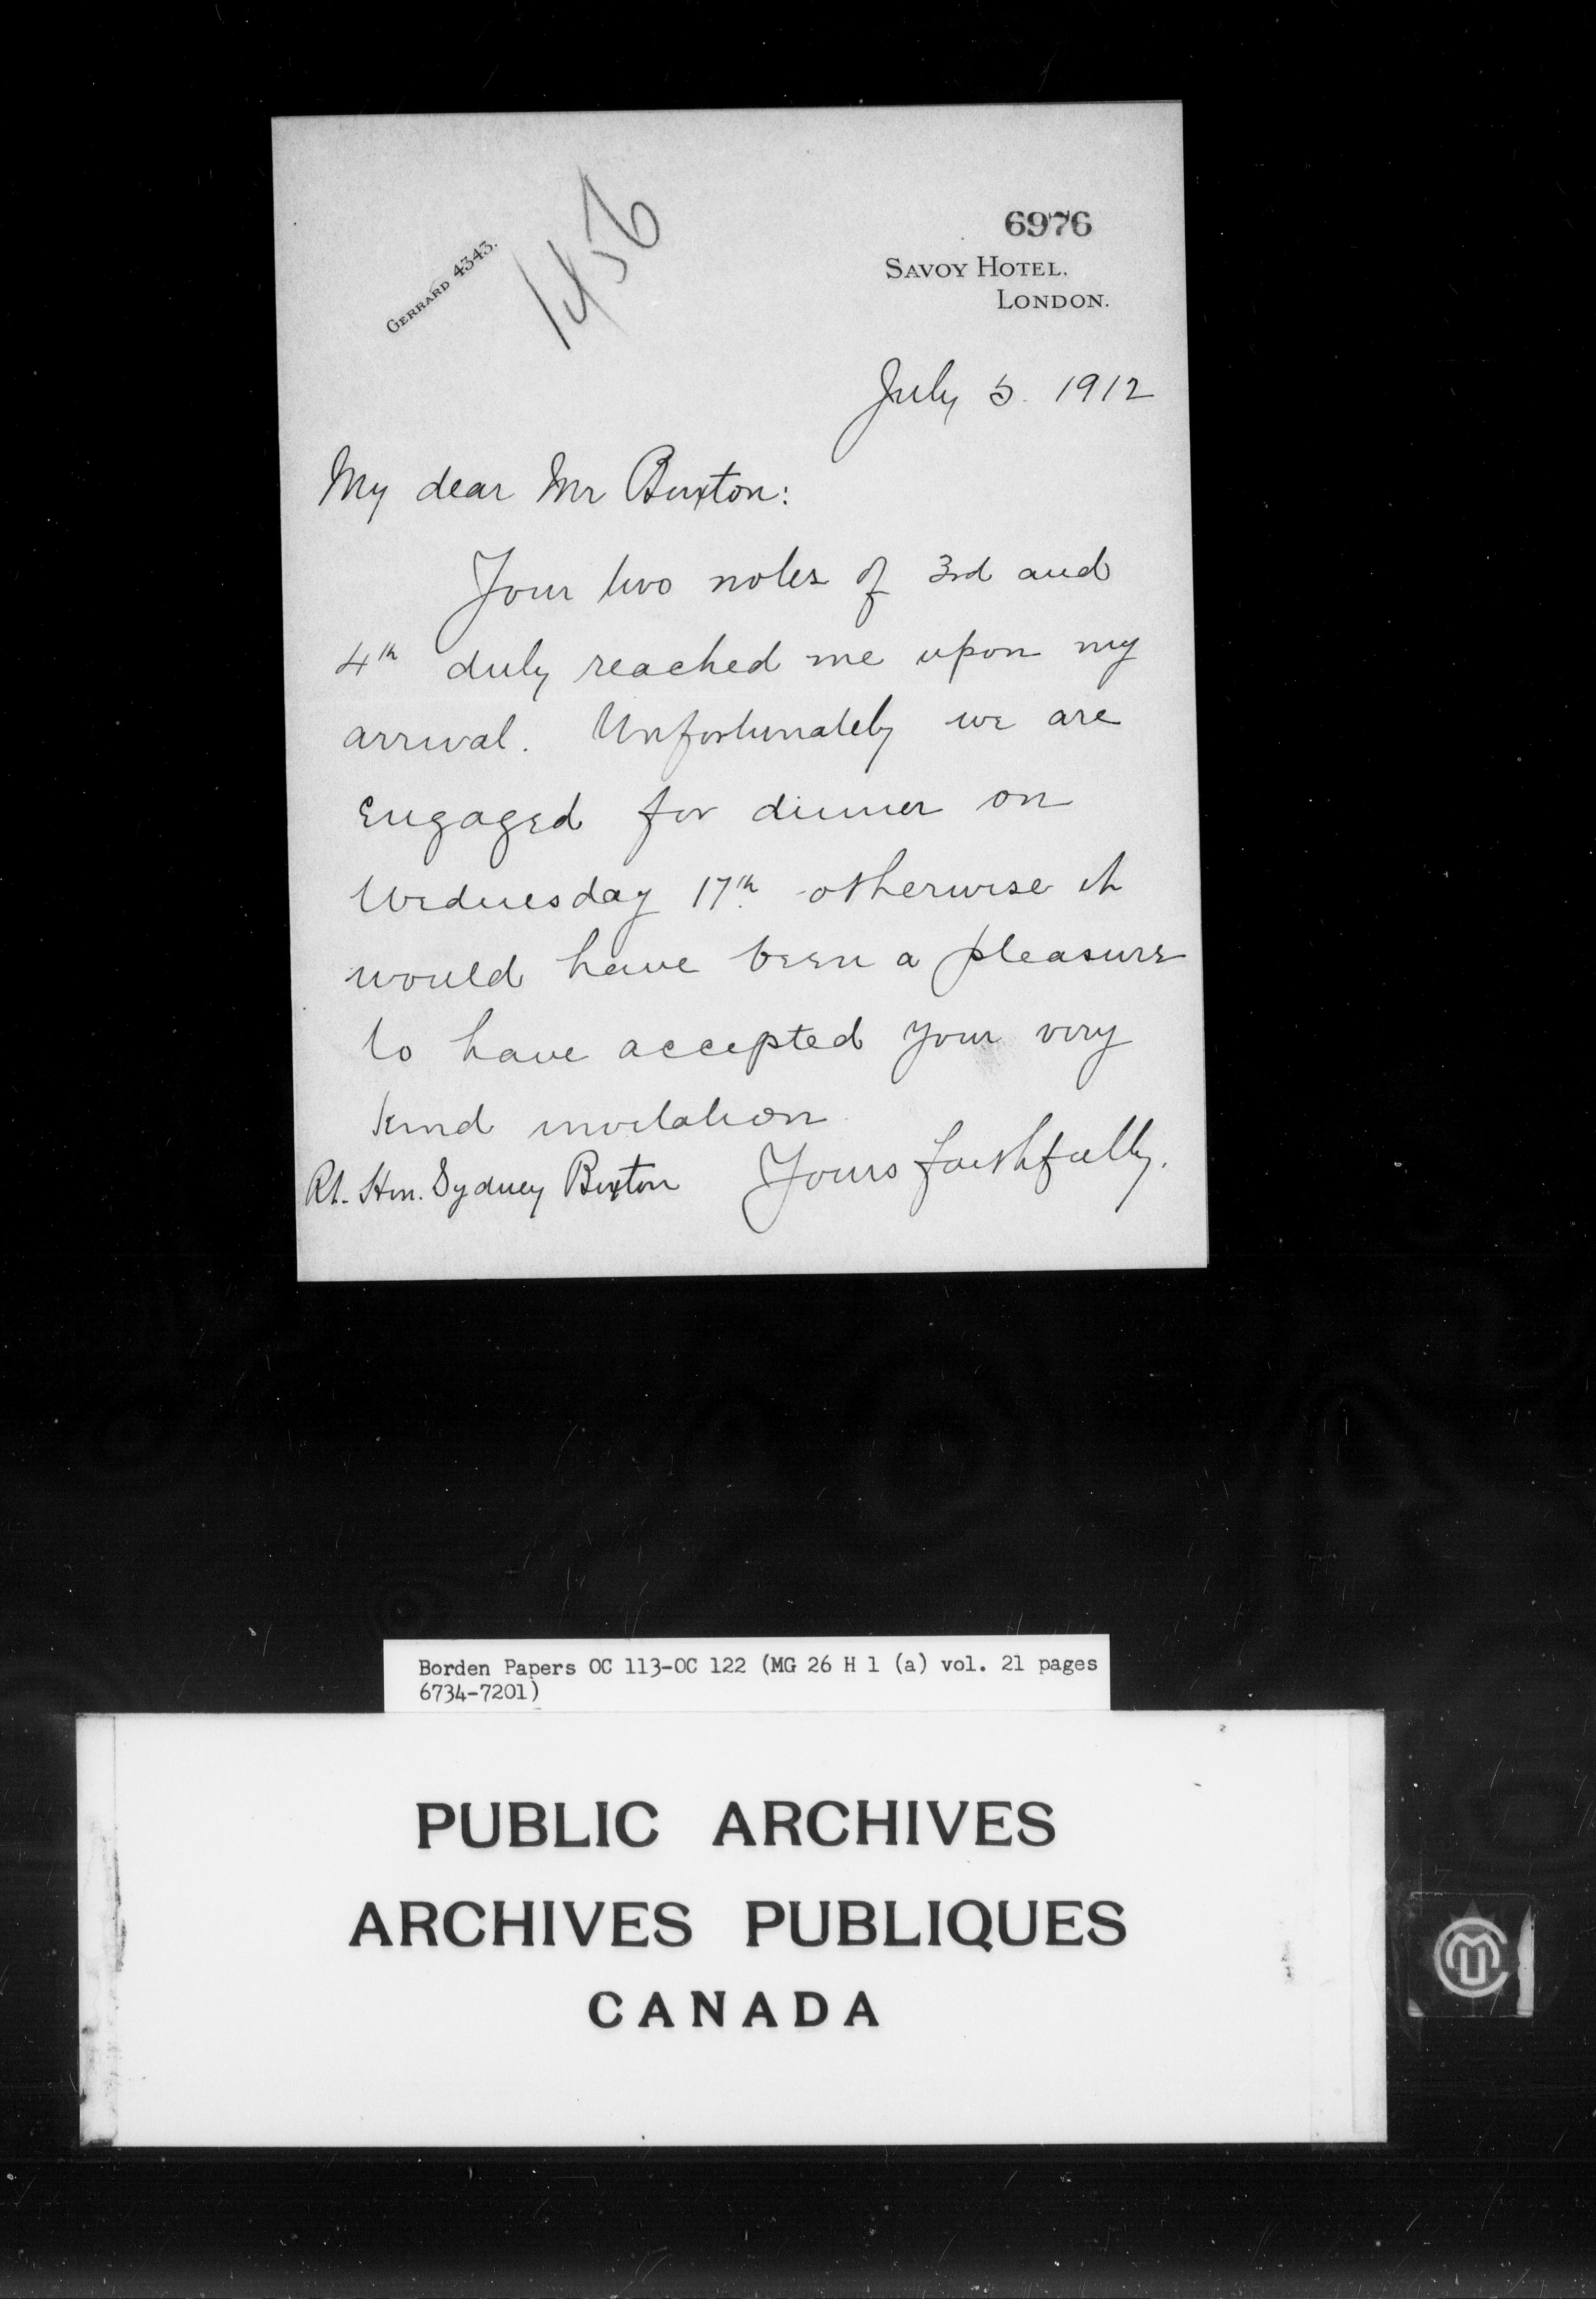 6976
GERRARD 4343.
SAVOY HOTEL,
LONDON.
July 5. 1912
My dear Mr Buxton:
Your two notes of 3rd and
4th duly reached me upon my
arrival. Unfortunately we are
engaged for dinner on
Wednesday 17th otherwise it
would have been a pleasure
to have accepted your very
kind invitation
Yours faithfully.
Rt. Hon. Sydney Buxton
Borden Papers OC 113-OC 122 (MG 26 H 1 (a) vol. 21 pages
6734-7201)
PUBLIC ARCHIVES
ARCHIVES PUBLIQUES
CANADA